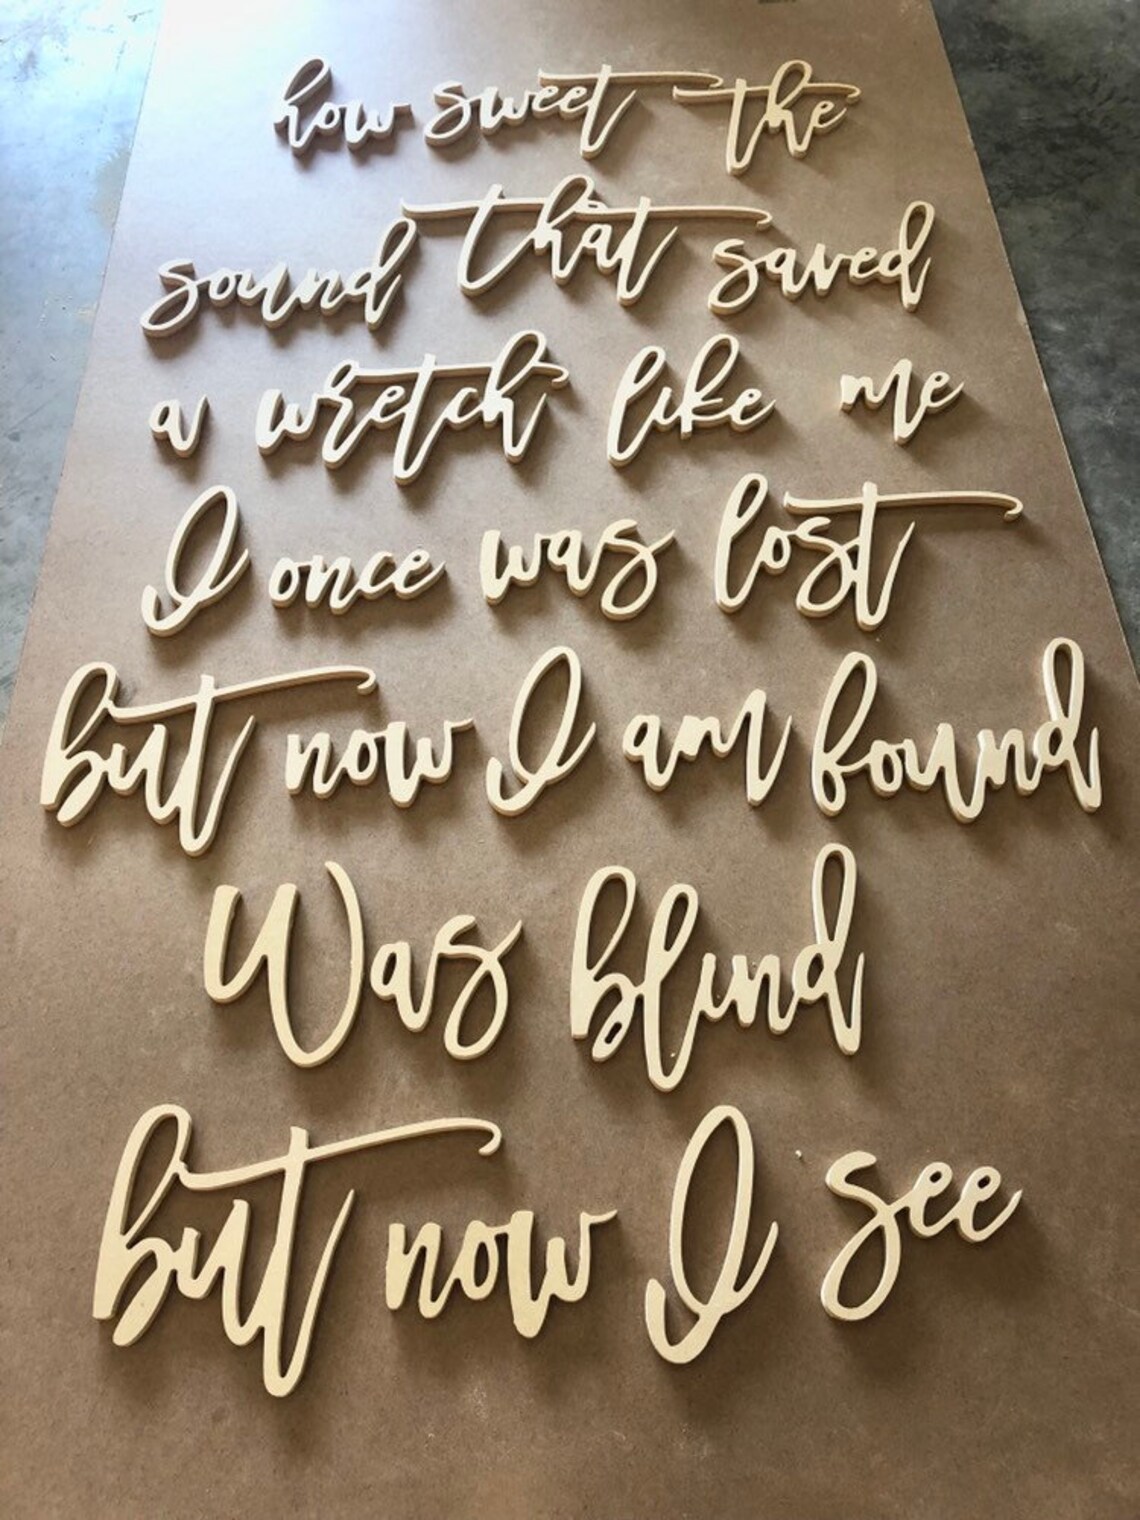 how sweet the
sound that saved
a wretch like me
I once was lost
but now I am found
Was blind
but now I see